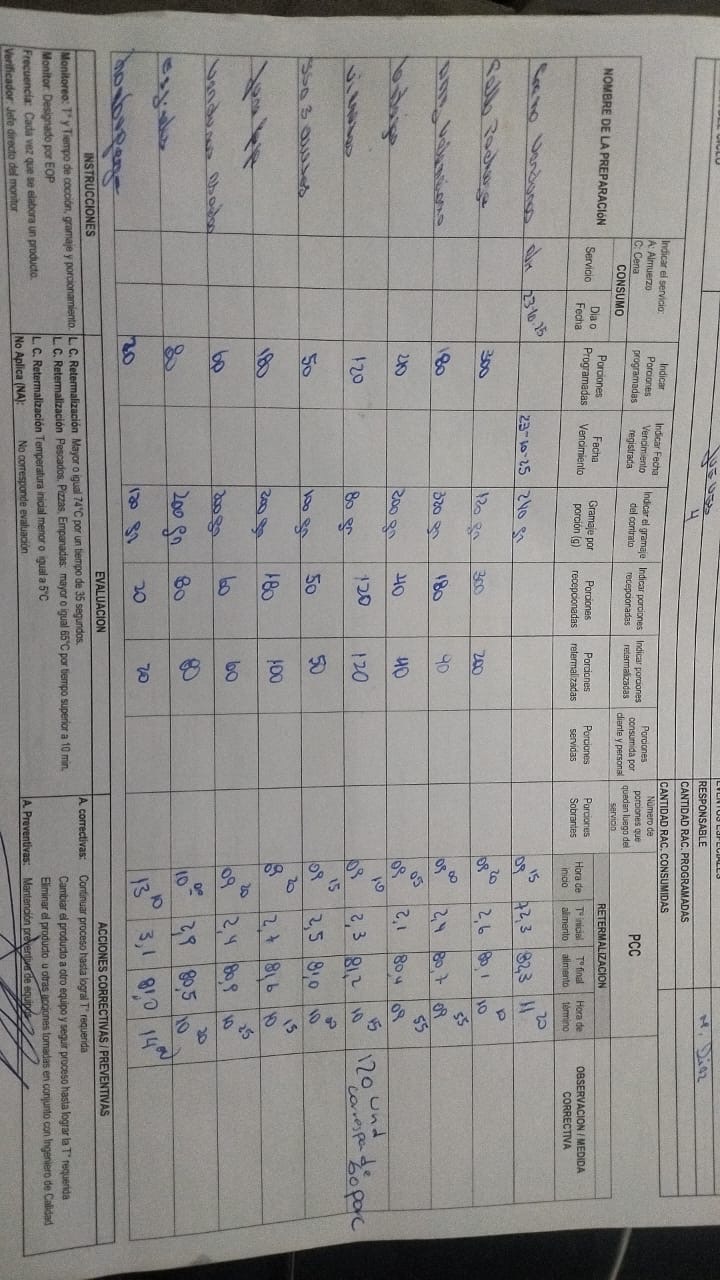 EVENTOS ESPECIALES
RESPONSABLE M. Diaz
CANTIDAD RAC. PROGRAMADAS
CANTIDAD RAC. CONSUMIDAS
4
Indicar el servicio: A: Almuerzo C: Cena
Indicar Porciones programadas
Indicar Fecha Vencimiento registrada
Indicar el gramaje del contrato
Indicar porciones recepcionadas
Indicar porciones retermalizadas
Porciones consumida por cliente y personal
Número de porciones que quedan luego del servicio
PCC
NOMBRE DE LA PREPARACIÓN
CONSUMO
Servicio
Dia o Fecha
Porciones Programadas
Fecha Vencimiento
Gramaje por porción (g)
Porciones recepcionadas
Porciones retermalizadas
Porciones servidas
Porciones Sobrantes
RETERMALIZACION
Hora de inicio
Tº inicial alimento
Tº final alimento
Hora de término
OBSERVACION / MEDIDA CORRECTIVA
23-10-25 23-10-25 240 gr 09 15 72,3 82,3 11 20
Pollo 300 120 gr 300 200 09 20 2,6 80,1 10 10
180 320 gr 180 90 09 00 2,4 80,7 09 55
40 200 gr 40 40 09 05 2,1 80,4 09 55
120 80 gr 120 120 09 10 2,3 81,2 10 15 120 und corresponde 60 porc
50 100 gr 50 50 09 15 2,5 81,0 10 00
180 200 gr 180 100 09 20 2,7 81,6 10 15
60 200 gr 60 60 09 20 2,4 80,9 10 25
80 200 gr 80 80 10 00 2,9 80,5 10 20
20 120 gr 20 20 13 10 3,1 81,0 14
INSTRUCCIONES
Monitoreo: Tº y Tiempo de cocción, gramaje y porcionamiento.
Monitor: Designado por EOP
Frecuencia: Cada vez que se elabora un producto.
Verificador: Jefe directo del monitor
EVALUACION
L. C. Retermalización Mayor o igual 74°C por un tiempo de 35 segundos.
L. C. Retermalización Pescados, Pizzas, Empanadas: mayor o igual 65°C por tiempo superior a 10 min.
L. C. Retermalización Temperatura inicial menor o igual a 5°C
No Aplica (NA): No corresponde evaluación
ACCIONES CORRECTIVAS / PREVENTIVAS
A. correctivas: Continuar proceso hasta logral Tº requerida
Cambiar el producto a otro equipo y seguir proceso hasta lograr la Tº requerida
Eliminar el producto u otras acciones tomadas en conjunto con Ingeniero de Calidad
A. Preventivas: Mantención preventiva de equipos